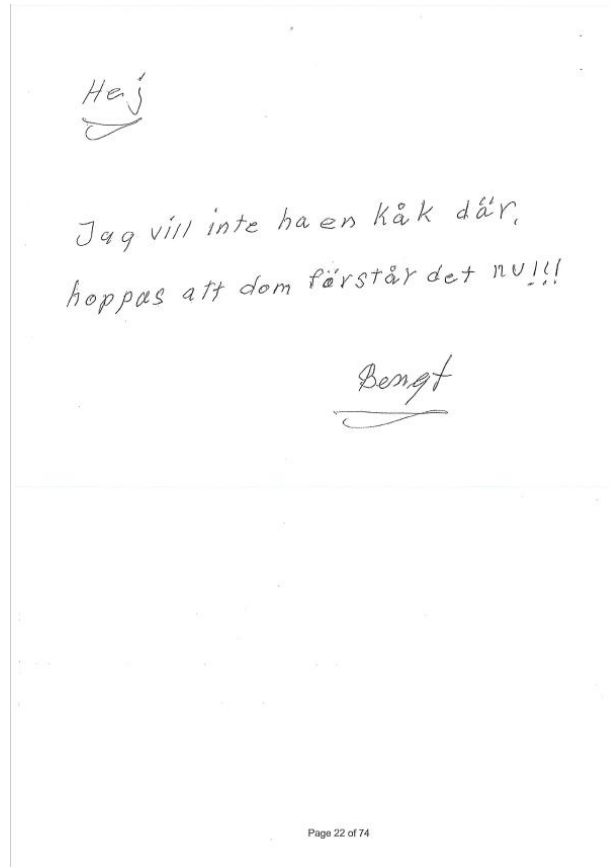 Hej
Jag vill inte ha en kåk där,
hoppas att dom förstår det nu!!!
Bengt
Page 22 of 74